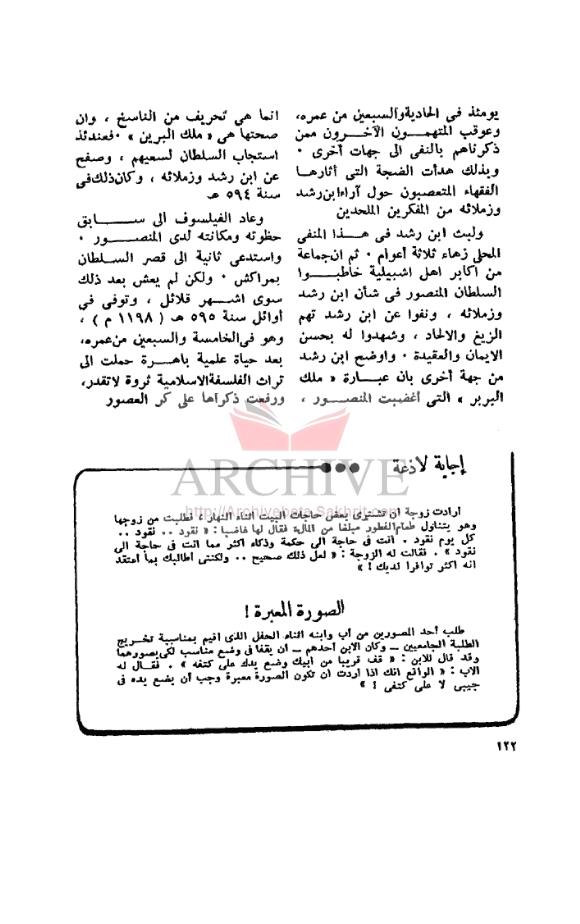 يومئذ في الحادية والسبعين من عمره،
وعوقب المتهمـــون الآخـرون ممن
ذكرناهم بالنفى الى جهات أخرى ٠
وبذلك هدأت الضجة التى أثارهـا
الفقهاء المتعصبون حول آراء ابن رشد
وزملائه من المفكرين الملحدين
ولبث ابن رشد فى هـــذا المنفى
المحلى زهاء ثلاثة أعوام ٠ ثم ان جماعة
من أكابر أهل اشبيلية خاطبـــوا
السلطان المنصور فى شأن ابن رشد
وزملائه ، ونفوا عن ابن رشد تهم
الزيغ والالحاد ، وشهدوا له بحسن
الايمان والعقيدة ٠ واوضح ابن رشد
من جهة أخرى بان عبـارة « ملك
البربر » التى أغضبت المنصـــور ،
انما هى تحريف من الناسخ ، وان
صحتها هى « ملك البرين » ٠ فعندئذ
استجاب السلطان لسعيهم ، وصفح
عن ابن رشد وزملائه ، وكان ذلك فى
سنة ٥٩٤ هـ
وعاد الفيلسوف الى ســـــابق
حظوته ومكانته لدى المنصــــور ٠
واستدعى ثانية الى قصر السـلطان
بمراكش ٠ ولكن لم يعش بعد ذلك
سوى اشـــهر قلائل ، وتوفى فى
أوائل سنة ٥٩٥ هـ ( ١١٩٨ م ) ،
وهو فى الخامسة والسبعين من عمره،
بعد حياة علمية باهــرة حملت الى
تراث الفلسفة الاسلامية ثروة لا تقدر،
ورفعت ذكراها على كر العصور
إجابة لاذعة
ARCHIVE
http://Archivebeta.Sakhrit.com
ارادت زوجة ان تشترى بعض حاجات البيت اثناء النهار ، فطلبت من زوجها
وهو يتناول طعام الفطور مبلغا من المال، فقال لها غاضبا : « نقود ٠٠ نقود ٠٠
كل يوم نقود ٠ انت فى حاجة الى حكمة وذكاء اكثر مما انت فى حاجة الى
نقود » ٠ فقالت له الزوجة : « لعل ذلك صحيح ٠٠ ولكنى أطالبك بما أعتقد
انه اكثر توافرا لديك ! »
الصورة المعبرة !
طلب أحد المصورين من أب وابنه اثناء الحفل الذى اقيم بمناسبة تخــريج
الطلبة الجامعيين ــ وكان الابن أحدهم ــ ان يقفا فى وضع مناسب لكى يصورهما
وقد قال للابن : « قف قريبا من ابيك وضع يدك على كتفه » ٠ فقــال له
الاب : « الواقع انك اذا اردت ان تكون الصورة معبرة وجب أن يضع يده فى
جيبى لا على كتفى ! »
١٢٢